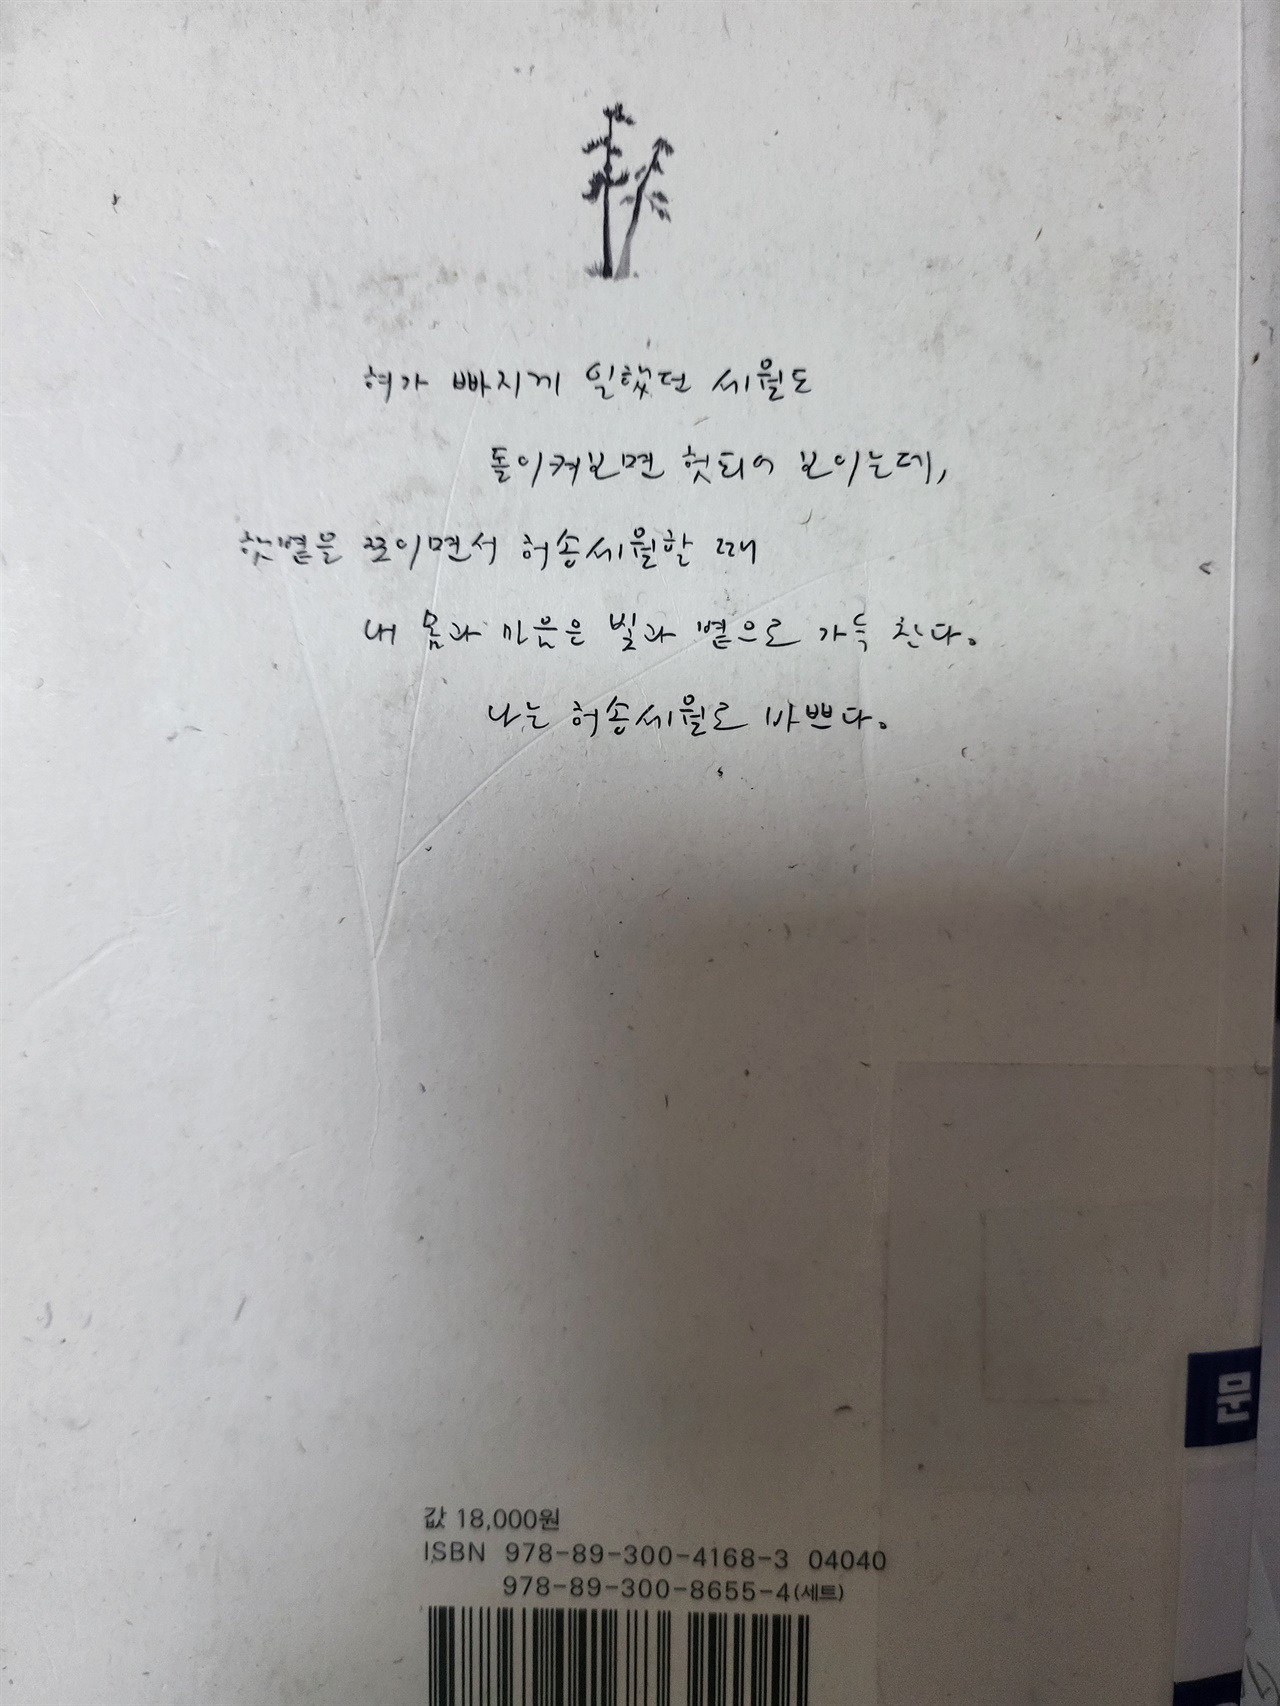 혀가 빠지게 일했던 세월도
돌이켜보면 헛되어 보이는데,
햇볕을 쪼이면서 허송세월할 때
내 몸과 마음은 빛과 볕으로 가득 찬다.
나는 허송세월로 바쁘다.
값 18,000원
ISBN 978-89-300-4168-3 04040
978-89-300-8655-4(세트)